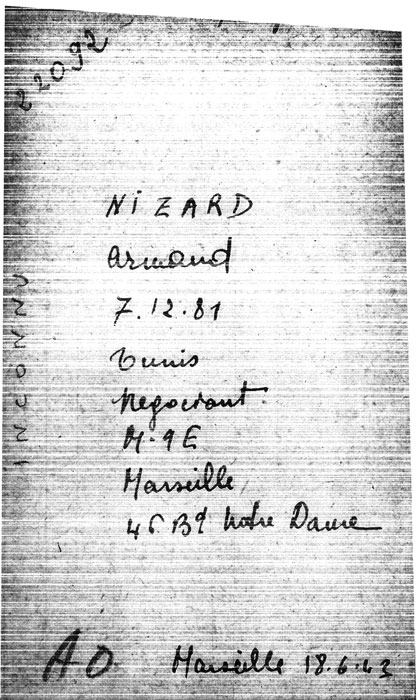 22092
INCONNU
NiZARD
Armand
7.12.81
Tunis
Negociant.
M. 9 E
Marseille
46 Bd Notre Dame
AD. Marseille 18.6.43